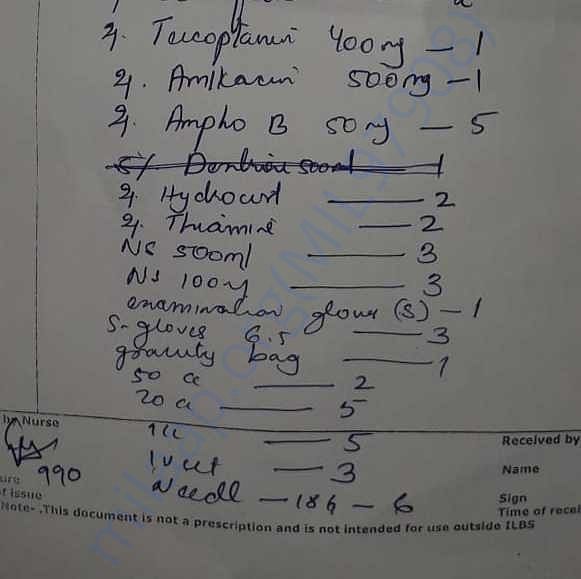 Teicoplanin 400mg — 1
Amikacin 500mg — 1
Ampho B 50mg — 5
5% Dextrose 500ml 1
Hydrocort — 2
Thiamine — 2
NS 500ml — 3
NS 100ml — 3
examination gloves (S) — 1
S-gloves 6.5 — 3
gravity bag — 1
50 cc — 2
20 cc — 5
1cc — 5
by Nurse
Received by
IV set — 3
Name
990
Needle — 18G — 6
Sign
of issue
Time of recei
Note- .This document is not a prescription and is not intended for use outside ILBS
milaap.org(MIL97908)